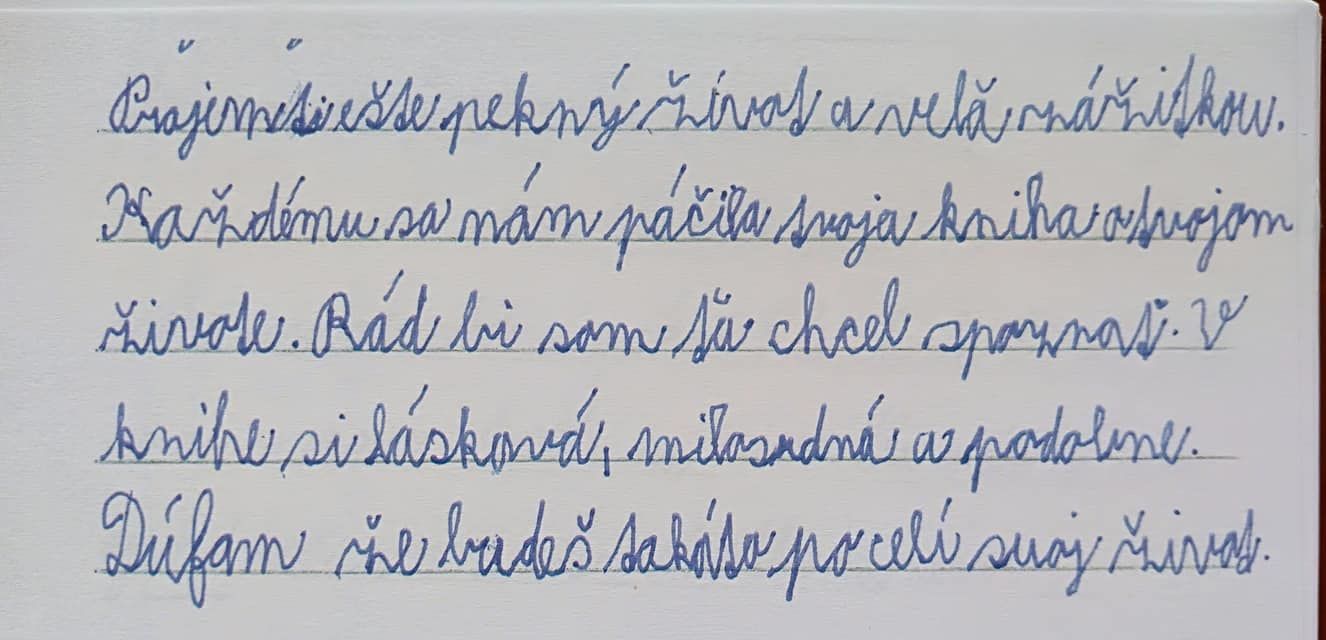 Prajem ti ešte pekný život a veľa zážitkou.
Každému sa nám páčila tvoja kniha o tvojom
živote. Rád bi som ťa chcel spoznať. V
knihe si láskavá, milosrdná a podobne.
Dúfam že budeš takáto po celí svoj život.